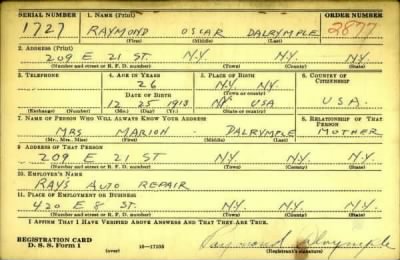 SERIAL NUMBER 1. NAME (Print) ORDER NUMBER
1727 RAYMOND OSCAR DALRYMPLE 2877
(First) (Middle) (Last)
2. ADDRESS (Print)
209 E 21 ST. N.Y. N.Y.
(Number and street or R. F. D. number) (Town) (County) (State)
3. TELEPHONE 4. AGE IN YEARS 5. PLACE OF BIRTH 6. COUNTRY OF CITIZENSHIP
26 N.Y. N.Y.
DATE OF BIRTH (Town or county)
12 25 1913 N.Y. USA U.S.A.
(Exchange) (Number) (Mo.) (Day) (Yr.) (State or country)
7. NAME OF PERSON WHO WILL ALWAYS KNOW YOUR ADDRESS 8. RELATIONSHIP OF THAT PERSON
MRS. MARION - DALRYMPLE MOTHER
(Mr., Mrs., Miss) (First) (Middle) (Last)
9. ADDRESS OF THAT PERSON
209 E 21 ST N.Y. N.Y. N.Y.
(Number and street or R. F. D. number) (Town) (County) (State)
10. EMPLOYER'S NAME
RAYS AUTO REPAIR
11. PLACE OF EMPLOYMENT OR BUSINESS
420 E 8 ST. N.Y. N.Y.
(Number and street or R. F. D. number) (Town) (County) (State)
I AFFIRM THAT I HAVE VERIFIED ABOVE ANSWERS AND THAT THEY ARE TRUE.
REGISTRATION CARD
D. S. S. Form 1 (over) 16-17105 Raymond Dalrymple
(Registrant's signature)